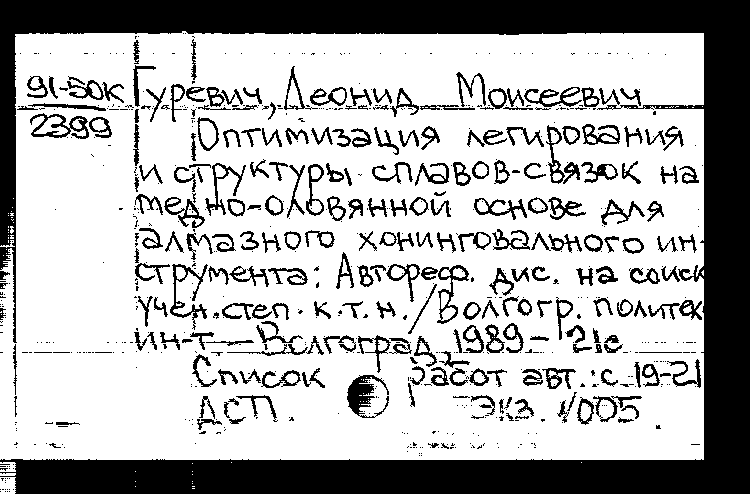 91-50К Гуревич, Леонид Моисеевич.
2399 Оптимизация легирования
и структуры сплавов-связок на
медно-оловянной основе для
алмазного хонинговального ин-
струмента: Автореф. дис. на соиск
учен. степ. к.т.н. / Волгогр. политех
ин-т — Волгоград, 1989. - 21с
Список работ авт.: с. 19-21
ДСП. Экз. 1/005.